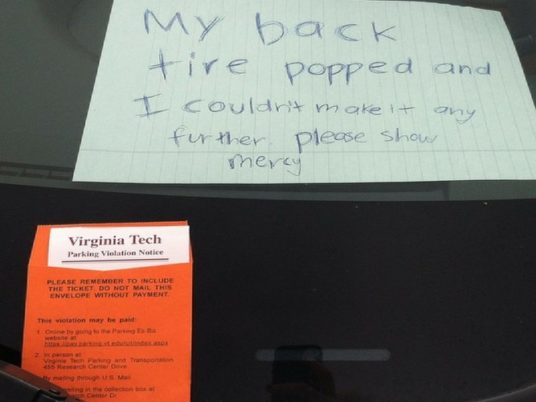 My back
tire popped and
I couldn't make it any
further. please show
mercy
Virginia Tech
Parking Violation Notice
PLEASE REMEMBER TO INCLUDE
THE TICKET. DO NOT MAIL THIS
ENVELOPE WITHOUT PAYMENT.
This violation may be paid:
1. Online by going to the Parking Ez Biz
website at
2. In person at
Virginia Tech Parking and Transportation
455 Research Center Drive
By mailing through U.S. Mail
in the collection box at
Center Dr